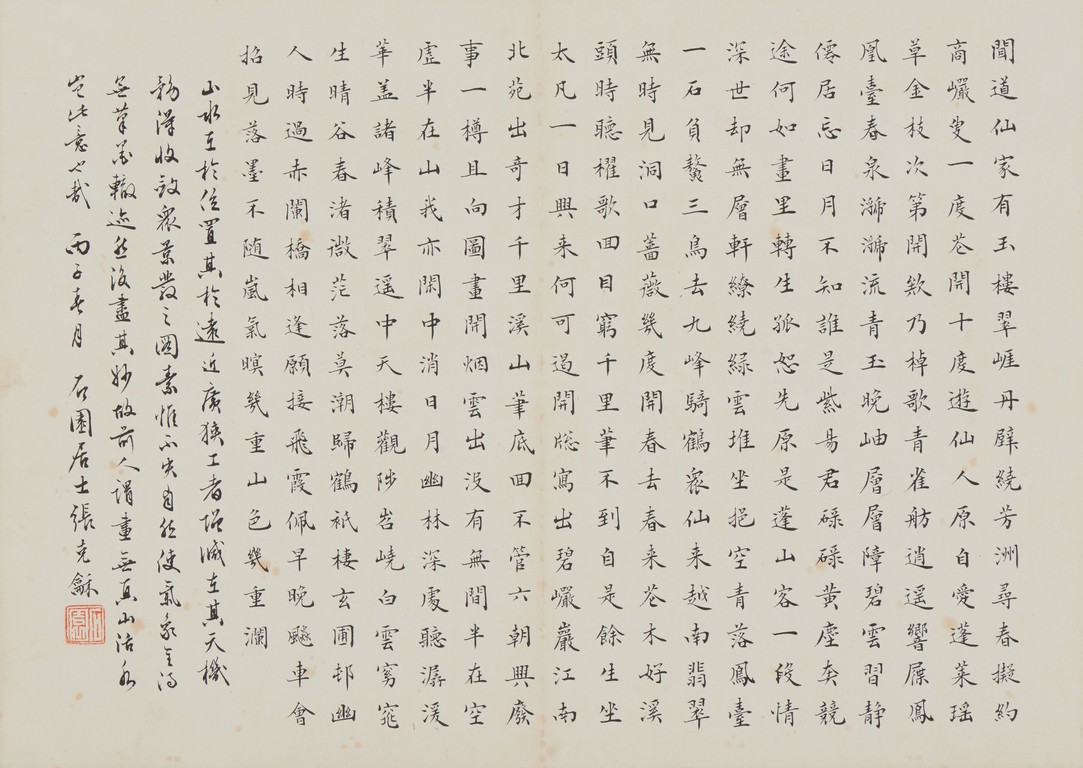 聞道仙家有玉樓翠崕丹壁繞芳洲尋春擬約
高巗叟一度苍開十度遊仙人原自愛蓬萊瑶
草金枝次第開欸乃棹歌青雀舫逍遥響屧鳳
凰臺春泉㶁㶁流青玉晚岫層層障碧雲習静
僊居忘日月不知誰是紫昜君碌碌黄塵奔競
途何如畫里轉生孤恕先原是蓬山客一段情
深世却無層軒繚繞緑雲堆坐挹空青落鳳臺
一石負鰲三鳥去九峰騎鶴衆仙来越南翡翠
無時見洞口蔷薇幾度開春去春来苍木好溪
頭時聽櫂歌回目窮千里筆不到自是餘生坐
太凡一日興来何可遏開牕寫出碧巗巖江南
北苑出奇才千里溪山筆底回不管六朝興廢
事一樽且向圖畫開烟雲出没有無間半在空
虚半在山我亦閑中消日月幽林深處聽潺湲
華盖諸峰積翠遥中天樓觀陟岧嶢白雲窈窕
生晴谷春渚微茫落莫潮歸鶴祇棲玄圃邨幽
人時過赤闌橋相逢願接飛霞佩早晚飈車會
招見落墨不随嵐氣暝幾重山色幾重瀾
山水在於位置其於遠近廣狭工者增減在其天機
務得收歛衆景發之圖素惟不失自然使氣象全得
無筆墨轍迹然後盡其妙故前人謂畫無真山活水
豈此意也哉 丙子春月 石園居士張克龢